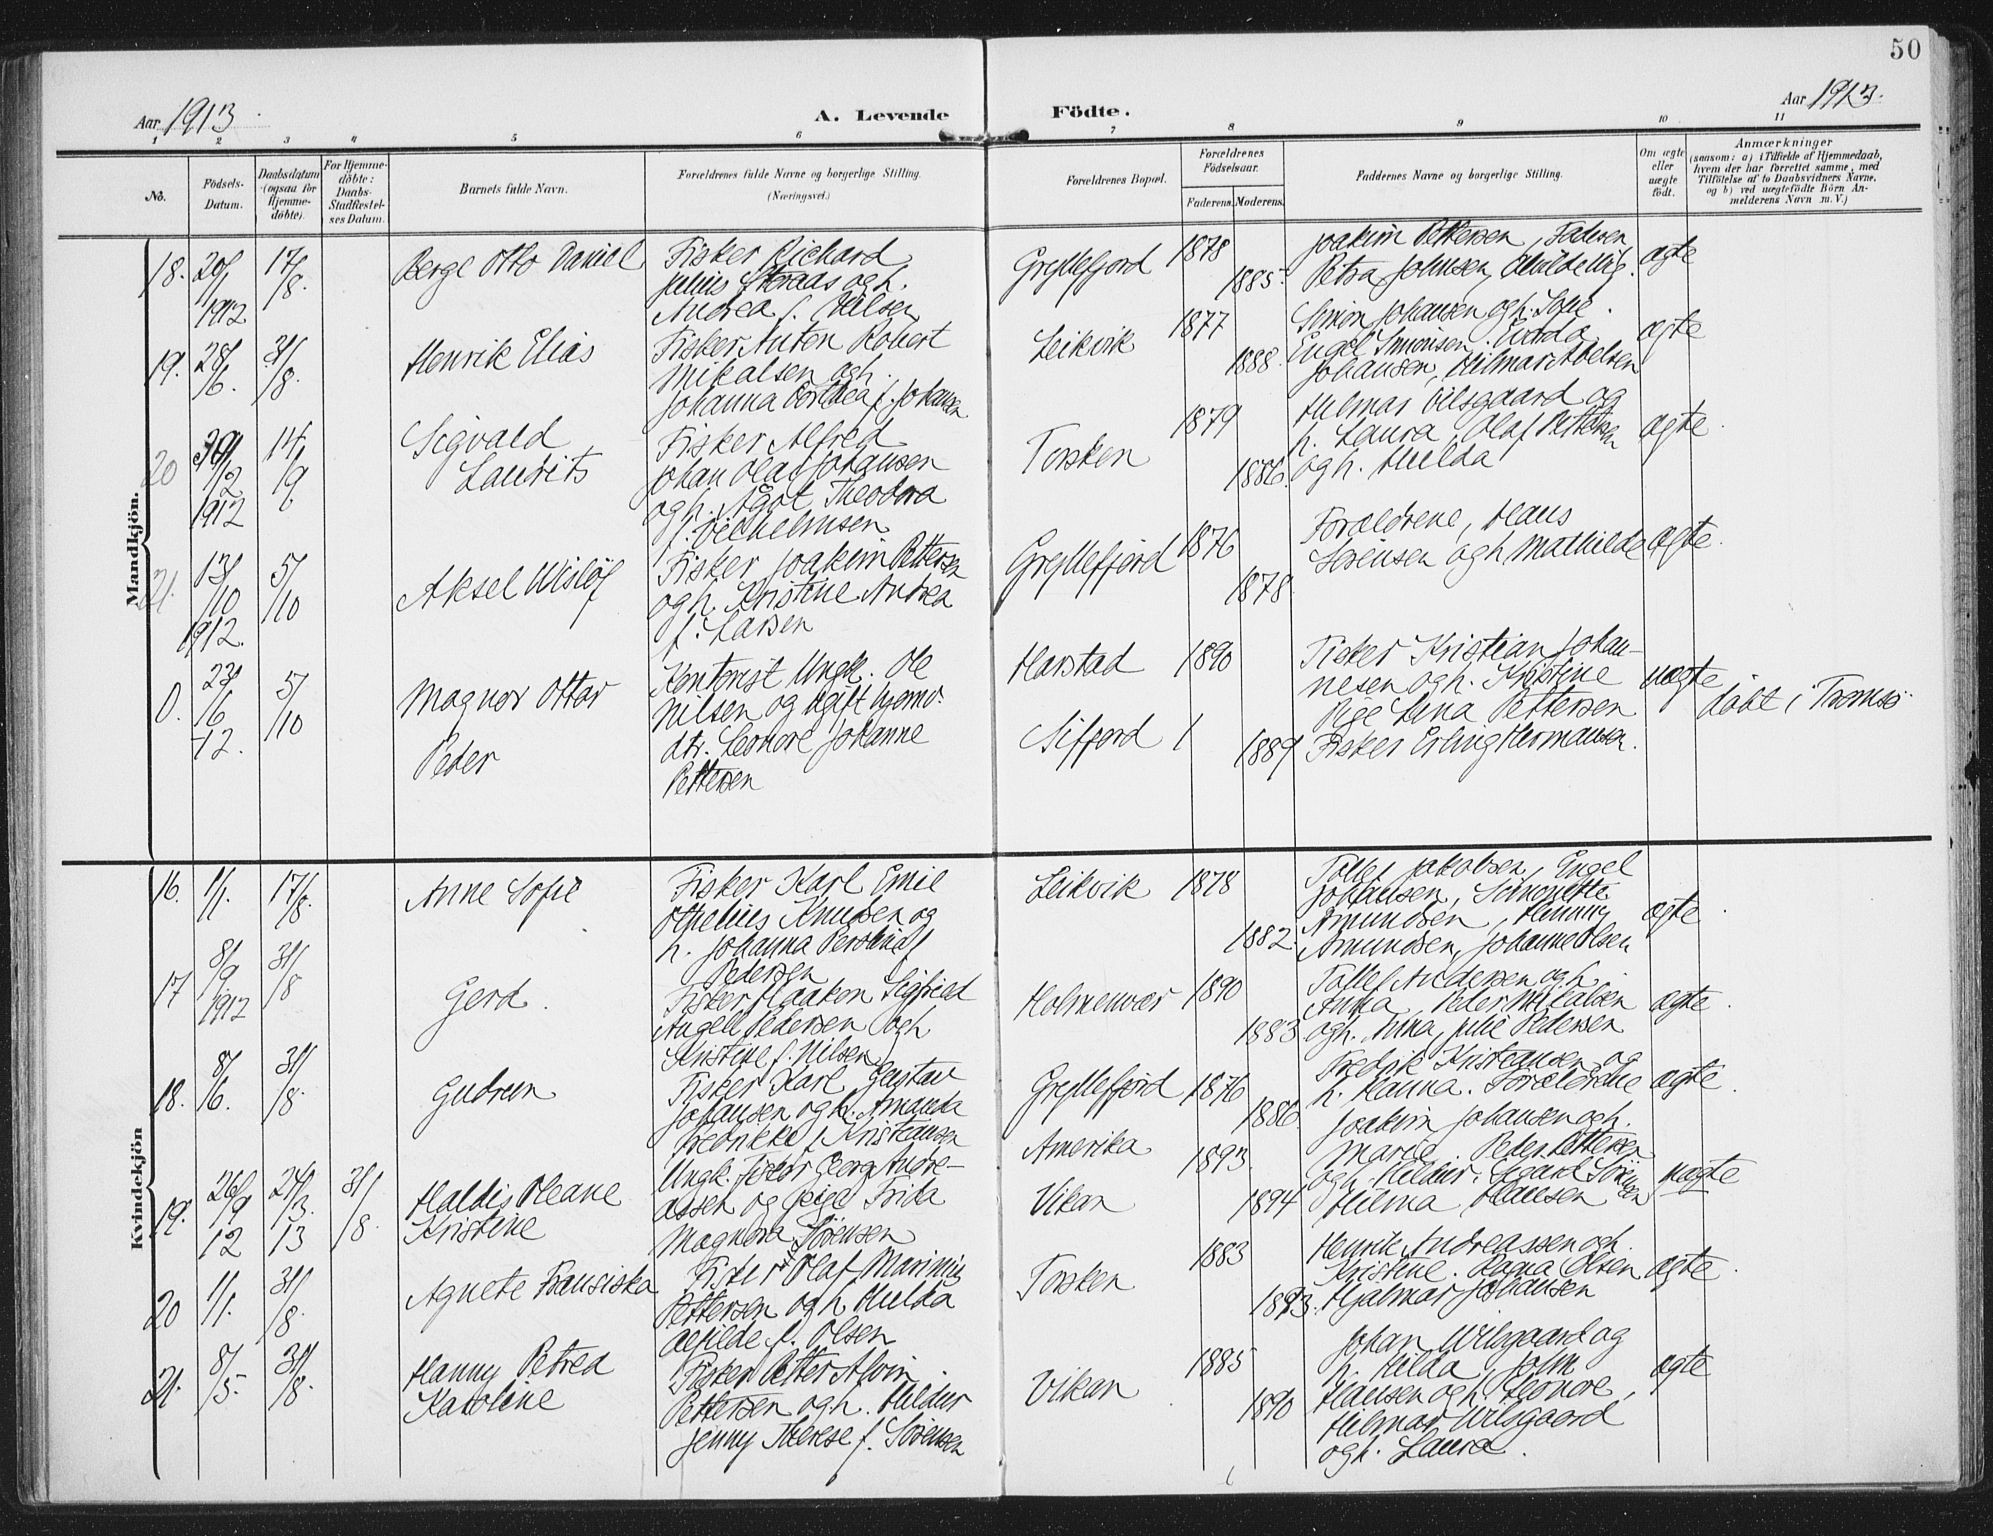 50
Aar 1913.
A. Levende Fødte.
Aar 1913.
1 2 3 4 5 6 7 8 9 10 11
No.
Födsels-Datum.
Daabsdatum (ogsaa for Hjemme-døbte).
For Hjemme-døbte: Daabs-Stadfæstel-ses Datum.
Barnets fulde Navn.
Forældrenes fulde Navne og borgerlige Stilling. (Næringsvei.)
Forældrenes Bopæl.
Forældrenes Födselsaar.
Faderens. Moderens.
Faddernes Navne og borgerlige Stilling.
Om ægte eller uægte født.
Anmærkninger
(saasom: a) i Tilfælde af Hjemmedaab, hvem der har forrettet samme, med Tilføielse af to Daabsvidners Navne, og b) ved uægtefødte Børn An-melderens Navn m. V.)
Mandkjön.
18. 20/1 1912 17/8 Berge Otto Daniel
Fisker Richard
Julius og h.
Andrea f. Nilsen
Gryllefjord 1878 1885.
Joakim Pettersen, Faderen
Petra Johnsen,
ægte
19. 28/6. 31/8 Henrik Elias
Fisker Anton Robert
Mikalsen og h.
Johanna Dorthea f. Johansen
Leikvik 1877 1888.
Simon Johansen og h. Sofie.
Engel Simonsen.
Johansen, Hilmar Abelsen
ægte
20 1912 14/9 Sigvald
Laurits
Fisker Alfred
Johan Olaf Johansen
og h. Ågot Theodora
f. Vilhelmsen
Torsken 1879 1886.
Hilmar Vilsgaard og
h. Laura, Olaf Pettersen
og h. Hulda
ægte
21. 13/10 1912. 5/10 Aksel Wisløf
Fisker Joakim Pettersen
og h. Kristine Andrea
f. Larsen
Gryllefjord 1876 1878.
Forældrene, Hans
Sørensen og h Mathilde
ægte.
0. 23/6 12. 5/10 Magnor Ottar
Peder
Kontorist Ungk. Ole
Nilsen og ugift
dtr. Leonore Johanne
Pettersen
Harstad 1890
Sifjord 1889
Fisker Kristian Johan-
nesen og h. Kristine
Pige Lina Pettersen
Fisker Erling Hermansen.
uægte
døbt i Tromsø
Kvindekjön
16. 1/1. 17/8. Anne Sofie
Fisker Karl Emil
Knudsen og
h. Johanna f
Pedersen
Leikvik 1878 1882.
Tollef Jakobsen, Engel
Johansen, Simonette
Amundsen, Henning
Amundsen, Johanne Olsen
ægte
17 8/9 1912 31/8 Gerd.
Fisker Haakon Sigfried
Angell Pedersen og h
Kristine f. Nilsen
Holmenvær 1890 1883
Tollef Andersen og h.
Anna, Peder Mikalsen
og h. Anna, Julie Pedersen
ægte.
18. 8/6. 31/8 Gudrun
Fisker Karl Gustav
Johansen og h. Amanda
Fredrikke f Kristiansen
Gryllefjord 1876 1886
Fredrik Kristiansen og
h. Hanna. Forældrene
ægte.
19. 26/9 12 24/3. 13 31/8. Haldis Oleane
Kristine
Ungk. Fisker Georg Andre-
assen og pige Frida
Magnora Sørensen
Amerika 1893.
Vikan 1894
Joakim Johansen og h.
Marie. Peder Pettersen
og h. Hildur. Sigurd Sørensen
Hilma Hansen
uægte
20 1/1. 31/8. Agnete Fransiska
Fisker Olaf Marinius
Pettersen og h Hulda
Alfilde f. Olsen
Torsken 1883 1893.
Henrik Andreassen og h.
Kristine. Ragna Olsen
Hjalmar Johansen
ægte.
21. 8/5. 31/8. Hanny Petrea
Karoline
Fisker Petter Alvin
Pettersen og h. Hildur
Jenny Therese f. Sørensen
Vikan 1885 1890
Johan Wilsgaard og
h. Hilda, John
Hansen og h. Leonore,
Hilmar Wilsgaard
og h. Laura.
ægte